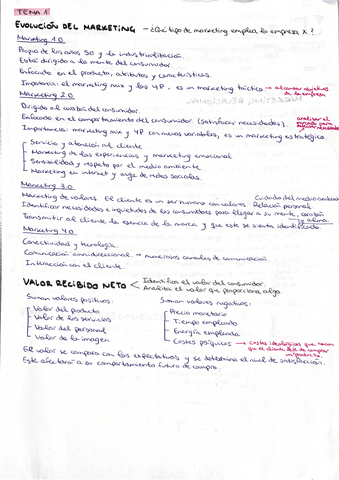 TEMA 1
EVOLUCIÓN DEL MARKETING - ¿Qué tipo de marketing emplea la empresa X?
Marketing 1.0
Propio de los años 50 y la industrialización.
Está dirigido a la mente del consumidor.
Enfocado en el producto, atributos y características.
Importancia: el marketing mix y las 4P. es un marketing táctico → alcanzar objetivos de la empresa
Marketing 2.0
Dirigido al corazón del consumidor.
Enfocado en el comportamiento del consumidor (satisfacer necesidades). analizar el mercado para necesidades
Importancia: marketing mix y 4P con nuevas variables, es un marketing estratégico.
Servicio y atención al cliente
Marketing de las experiencias y marketing emocional
Sensibilidad y respeto por el medio ambiente
Marketing en internet y auge de redes sociales.
Marketing 3.0
Marketing de valores. El cliente es un ser humano con valores
Cuidado del medio ambiente
Relación personal
Identificar necesidades e inquietudes de los consumidores para llegar a su mente, corazón y alma.
Transmitir al cliente la esencia de la marca y que este se sienta identificado
Marketing 4.0
Conectividad y tecnología.
Comunicación omnidireccional → numerosos canales de comunicación.
Interacción con el cliente.
VALOR RECIBIDO NETO < Identifica el valor del consumidor.
Analiza el valor que proporciona algo.
Suman valores positivos:
Valor del producto
Valor de los servicios
Valor del personal
Valor de la imagen
Suman valores negativos:
Precio monetario
Tiempo empleado
Energía empleada
Costes psíquicos → costes ideológicos que hacen que el cliente deje de comprar un producto
El valor se compara con las expectativas y se determina el nivel de satisfacción.
Este afectará a su comportamiento futuro de compra.